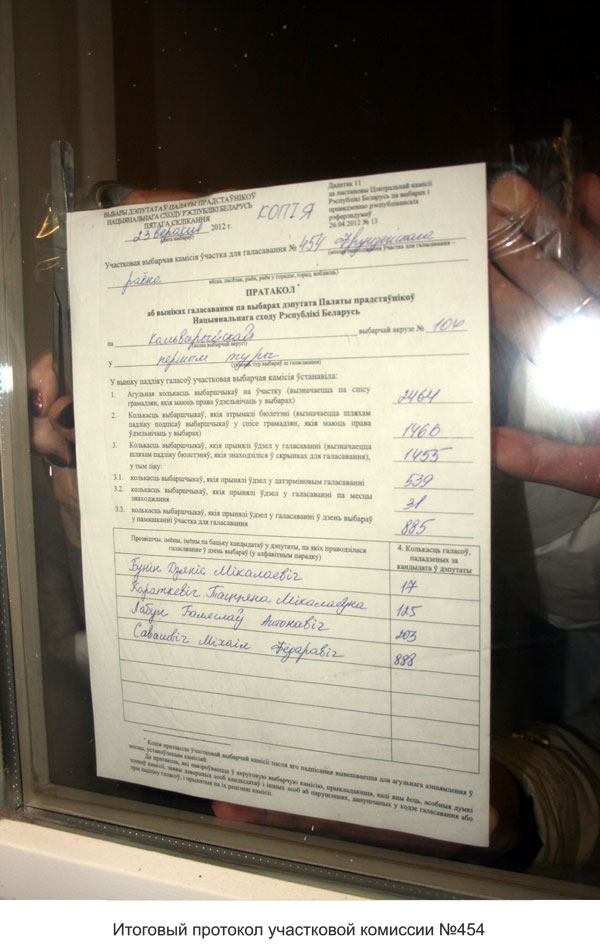 ВЫБАРЫ ДЭПУТАТАЎ ПАЛАТЫ ПРАДСТАЎНІКОЎ
НАЦЫЯНАЛЬНАГА СХОДУ РЭСПУБЛІКІ БЕЛАРУСЬ
ПЯТАГА СКЛІКАННЯ
23 верасня 2012 г.
(дата выбараў)
КОПІЯ
Дадатак 11
да пастановы Цэнтральнай камісіі
Рэспублікі Беларусь па выбарах і
правядзенню рэспубліканскіх
рэферэндумаў
26.04.2012 № 13
Участковая выбарчая камісія ўчастка для галасавання № 454 Фрунзенскага
раёна
ПРАТАКОЛ *
аб выніках галасавання па выбарах дэпутата Палаты прадстаўнікоў
Нацыянальнага сходу Рэспублікі Беларусь
па Кальварыйскай выбарчай акрузе № 104
(назва выбарчай акругі)
у першым туры
У выніку падліку галасоў участковая выбарчая камісія ўстанавіла:
1. Агульная колькасць выбаршчыкаў на ўчастку (вызначаецца па спісу
грамадзян, якія маюць права ўдзельнічаць у выбарах) 2464
2. Колькасць выбаршчыкаў, якія атрымалі бюлетэні (вызначаецца шляхам
падліку подпісаў выбаршчыкаў у спісе грамадзян, якія маюць права
ўдзельнічаць у выбарах) 1460
3. Колькасць выбаршчыкаў, якія прынялі ўдзел у галасаванні (вызначаецца
шляхам падліку бюлетэняў, якія знаходзіліся ў скрынках для галасавання), 1455
у тым ліку:
3.1. колькасць выбаршчыкаў, якія прынялі ўдзел у датэрміновым галасаванні 539
3.2. колькасць выбаршчыкаў, якія прынялі ўдзел у галасаванні па месцы
знаходжання 31
3.3. колькасць выбаршчыкаў, якія прынялі ўдзел у галасаванні ў дзень выбараў
у памяшканні ўчастка для галасавання 885
Прозвішчы, імёны, імёны па бацьку кандыдатаў у дэпутаты, па якіх праводзілася
галасаванне ў дзень выбараў (у алфавітным парадку)
4. Колькасць галасоў,
пададзеных за
кандыдата ў дэпутаты
Бунін Дзяніс Мікалаевіч 17
Караткевіч Таццяна Мікалаеўна 125
Лабун Баляслаў Антонавіч 203
Савановіч Міхаіл Фёдаравіч 888
* Копія пратакола ўчастковай выбарчай камісіі пасля яго падпісання вывешваецца для агульнага азнаямлення ў
месцы, устаноўленым камісіяй.
Да пратакола, які накіроўваецца ў акруговую выбарчую камісію, прыкладаюцца, калі яны ёсць, асобныя думкі
членаў камісіі, заявы давераных асоб кандыдатаў і іншых асоб аб парушэннях, дапушчаных у ходзе галасавання або
пры падліку галасоў, і прынятыя па іх рашэнні камісіі.
Итоговый протокол участковой комиссии №454